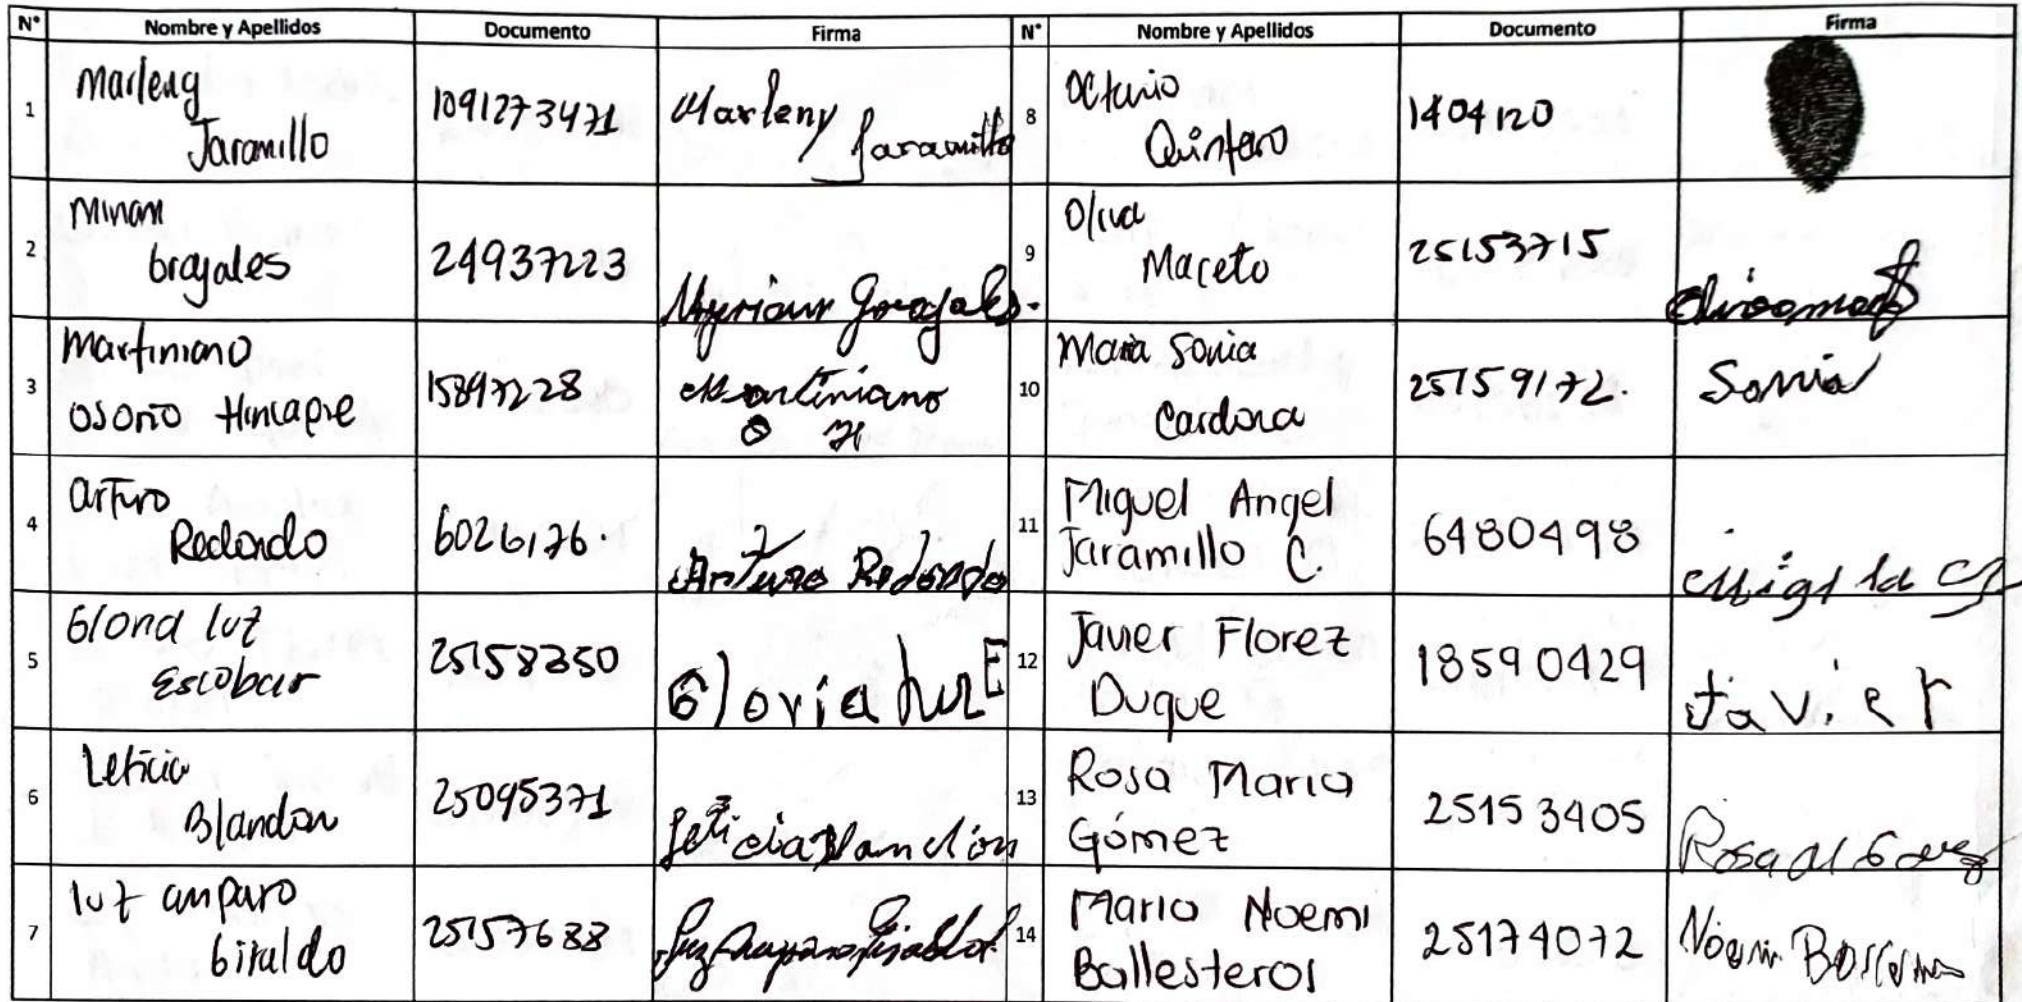 N° Nombre y Apellidos Documento Firma N° Nombre y Apellidos Documento Firma
1 Marleny
Jaramillo
1091273471
Marleny
Jaramillo
8 Octavio
Quintero
1404120
2 Mirian
Grajales
24937223
Myriam Grajales.
9 Oliva
Maceto
25153715
3 Martiniano
Osorio Hincapie
15897228
Martiniano
O H
10 Maria Sonia
Cardona
25159172.
Sonia
4 Arturo
Redondo
6026176.
Arturo Redondo
11 Miguel Angel
Jaramillo C.
6480498
5 Gloria luz
Escobar
25158350
Gloria luz E
12 Javier Florez
Duque
18590429
Javier
6 Leticia
Blandon
25095371
Leticia Blandón
13 Rosa Maria
Gómez
25153405
Rosa M Gomez
7 luz amparo
Giraldo
25157688
Luz Amparo Giraldo
14 Maria Noemi
Ballesteros
25174072
Noemi